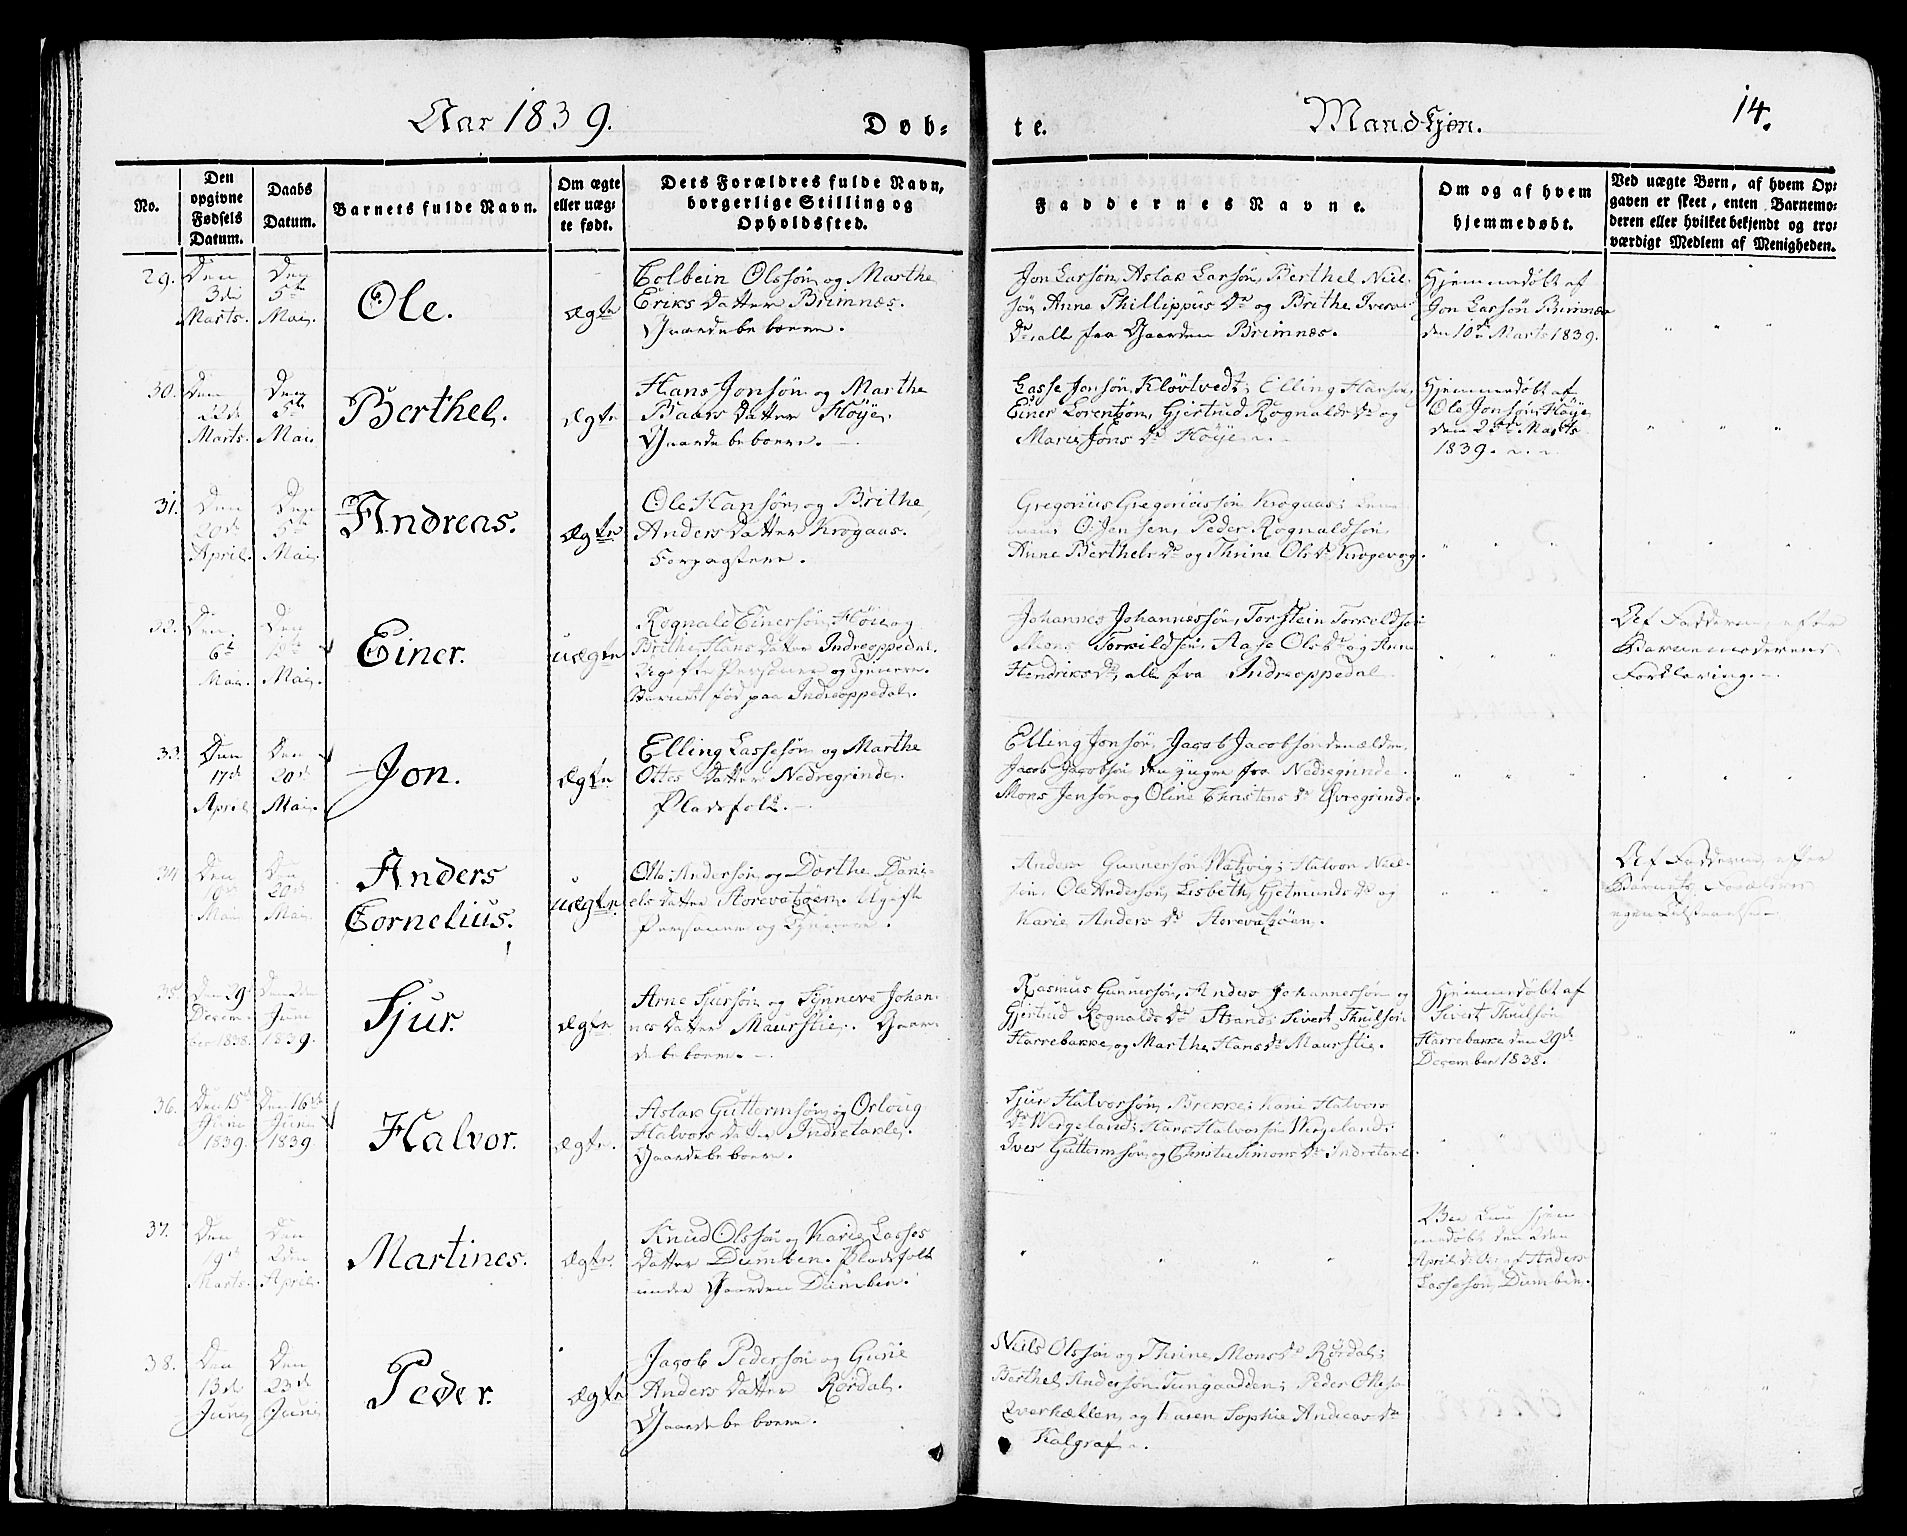 Aar 1839.
Døb-
te.
Mandkjøn.
14.
No.
Den opgivne Fødsels Datum.
Daabs Datum.
Barnets fulde Navn.
Om ægte eller uægte født.
Dets Forældres fulde Navn, borgerlige Stilling og Opholdssted.
Faddernes Navne.
Om og af hvem hjemmedøbt.
Ved uægte Børn, af hvem Opgaven er skeet, enten Barnemoderen eller hvilket bekjendt og troværdigt Medlem af Menigheden.
29.
Den
3die
Marts.
Den
5te
Mai.
Ole.
ægte
Colbein Olssøn og Marthe
Eriks Datter Brimnæs.
Gaardebeboere.
Jon Larsøn, Aslak Larsøn, Berthel Niel-
søn, Anne Phillippus Dr og Brithe Ivers
Dr, alle fra Gaarden Brimnæs.
Hjemmedøbt af
Jon Larsøn Brimnæs
den 10de Marts 1839.
30.
Den
22de
Marts.
Den
5te
Mai.
Berthel.
ægte
Hans Jonsøn og Marthe
Baars Datter Høye.
Gaardebeboere.
Lasse Jonsøn, Kløvtvedt; Elling Hansøn,
Einer Lorentzøn, Gjertrud Rognalds Dr og
Marie Jons Dr Høye.
Hjemmedøbt af
Ole Jonsøn, Høye
den 25de Marts
1839.
31.
Den
20de
April.
Den
5te
Mai.
Andreas.
ægte
Ole Hansøn og Brithe
Anders Datter Krogaas.
Forpagtere.
Gregorius Gregoriussøn Krogaas;
Peder Rognaldsøn,
Anne Berthels Dr og Thrine Ols Dr Krogevog.
32.
Den
6te
Mai.
Den
19te
Mai.
Einer.
uægte
Rognald Einersøn, Høie og
Brithe Hans Datter Indreoppedal.
Ugifte Personer og Tjenere.
Barnet fød paa Indreoppedal.
Johannes Johannessøn, Torstein Torkildsøn
Mons Torkildsøn, Aase Ols Dr og Anne
Hendriks Dr, alle fra Indreoppedal
Af Fadderne, efter
Barnemoderens
Forklaring.
33.
Den
17de
April
Den
20de
Mai.
Jon.
ægte
Elling Lassesøn og Marthe
Ottes Datter Nedregrinde.
Pladsfolk.
Elling Jonsøn, Jacob Jacobsøn den ældre,
Jacob Jacobsøn den yngre fra Nedregrinde.
Mons Jensøn og Oline Christens Dr Øvregrinde.
34
Den
19de
Mai
Den
20de
Mai.
Anders
Cornelius.
uægte
Ole Andersøn og Dorthe Dani-
els Datter Storevatzøen. Ugifte
Personer og Tjenere.
Anders Gunnersøn Vatzvig; Halvor Niel-
søn, Ole Andersøn, Lisbeth Gjetmunds Dr og
Karie Anders Dr Storevatzøen.
Af Fadderne, efter
Barnets Forældres
egen Tilstaaelse
35.
Den 29de
Decem-
ber 1838.
Den 2den
Juni
1839.
Sjur.
ægte
Arne Sjursøn og Synneve Johan-
nes Datter Maurstie. Gaar-
debeboere.
Rasmus Gunnersøn, Anders Johannessøn og
Gjertrud Rognalds Dr Strand; Sivert Thuilsøn
Harrebakke, og Marthe Hans Dr Maurstie.
Hjemmedøbt af
Sivert Thuilsøn
Harrebakke den 29de
December 1838.
36.
Den 15de
Juni
1839.
Den 16de
Juni
1839.
Halvor.
ægte.
Aslak Guttormsøn og Orloug
Halvors Datter Indretakle.
Gaardebeboere.
Sjur Halvorsøn, Brekke; Karie Halvors
Dr Wergeland; Hans Halvorsøn Wergeland;
Iver Guttormsøn, og Christie Simons Dr Indretakle.
37.
Den
19de
Marts.
Den
2den
April.
Martines.
ægte.
Knud Olssøn og Karie Lasses
Datter Dumben. Pladsfolk
under Gaarden Dumben.
Hjem-
medøbt den 2den
April af Anders
Lassesøn, Dumben.
38.
Den
13de
Juni
Den
23de
Juni
Peder.
ægte
Jacob Pedersøn og Gurie
Anders Datter Rørdal.
Gaardebeboere.
Neils Olssøn og Thrine Mons Dr Rørdal;
Berthel Andersøn Tungodden; Peder Olsen
Qverhællen, og Karen Sophie Andreas Dr
Kalgraf.